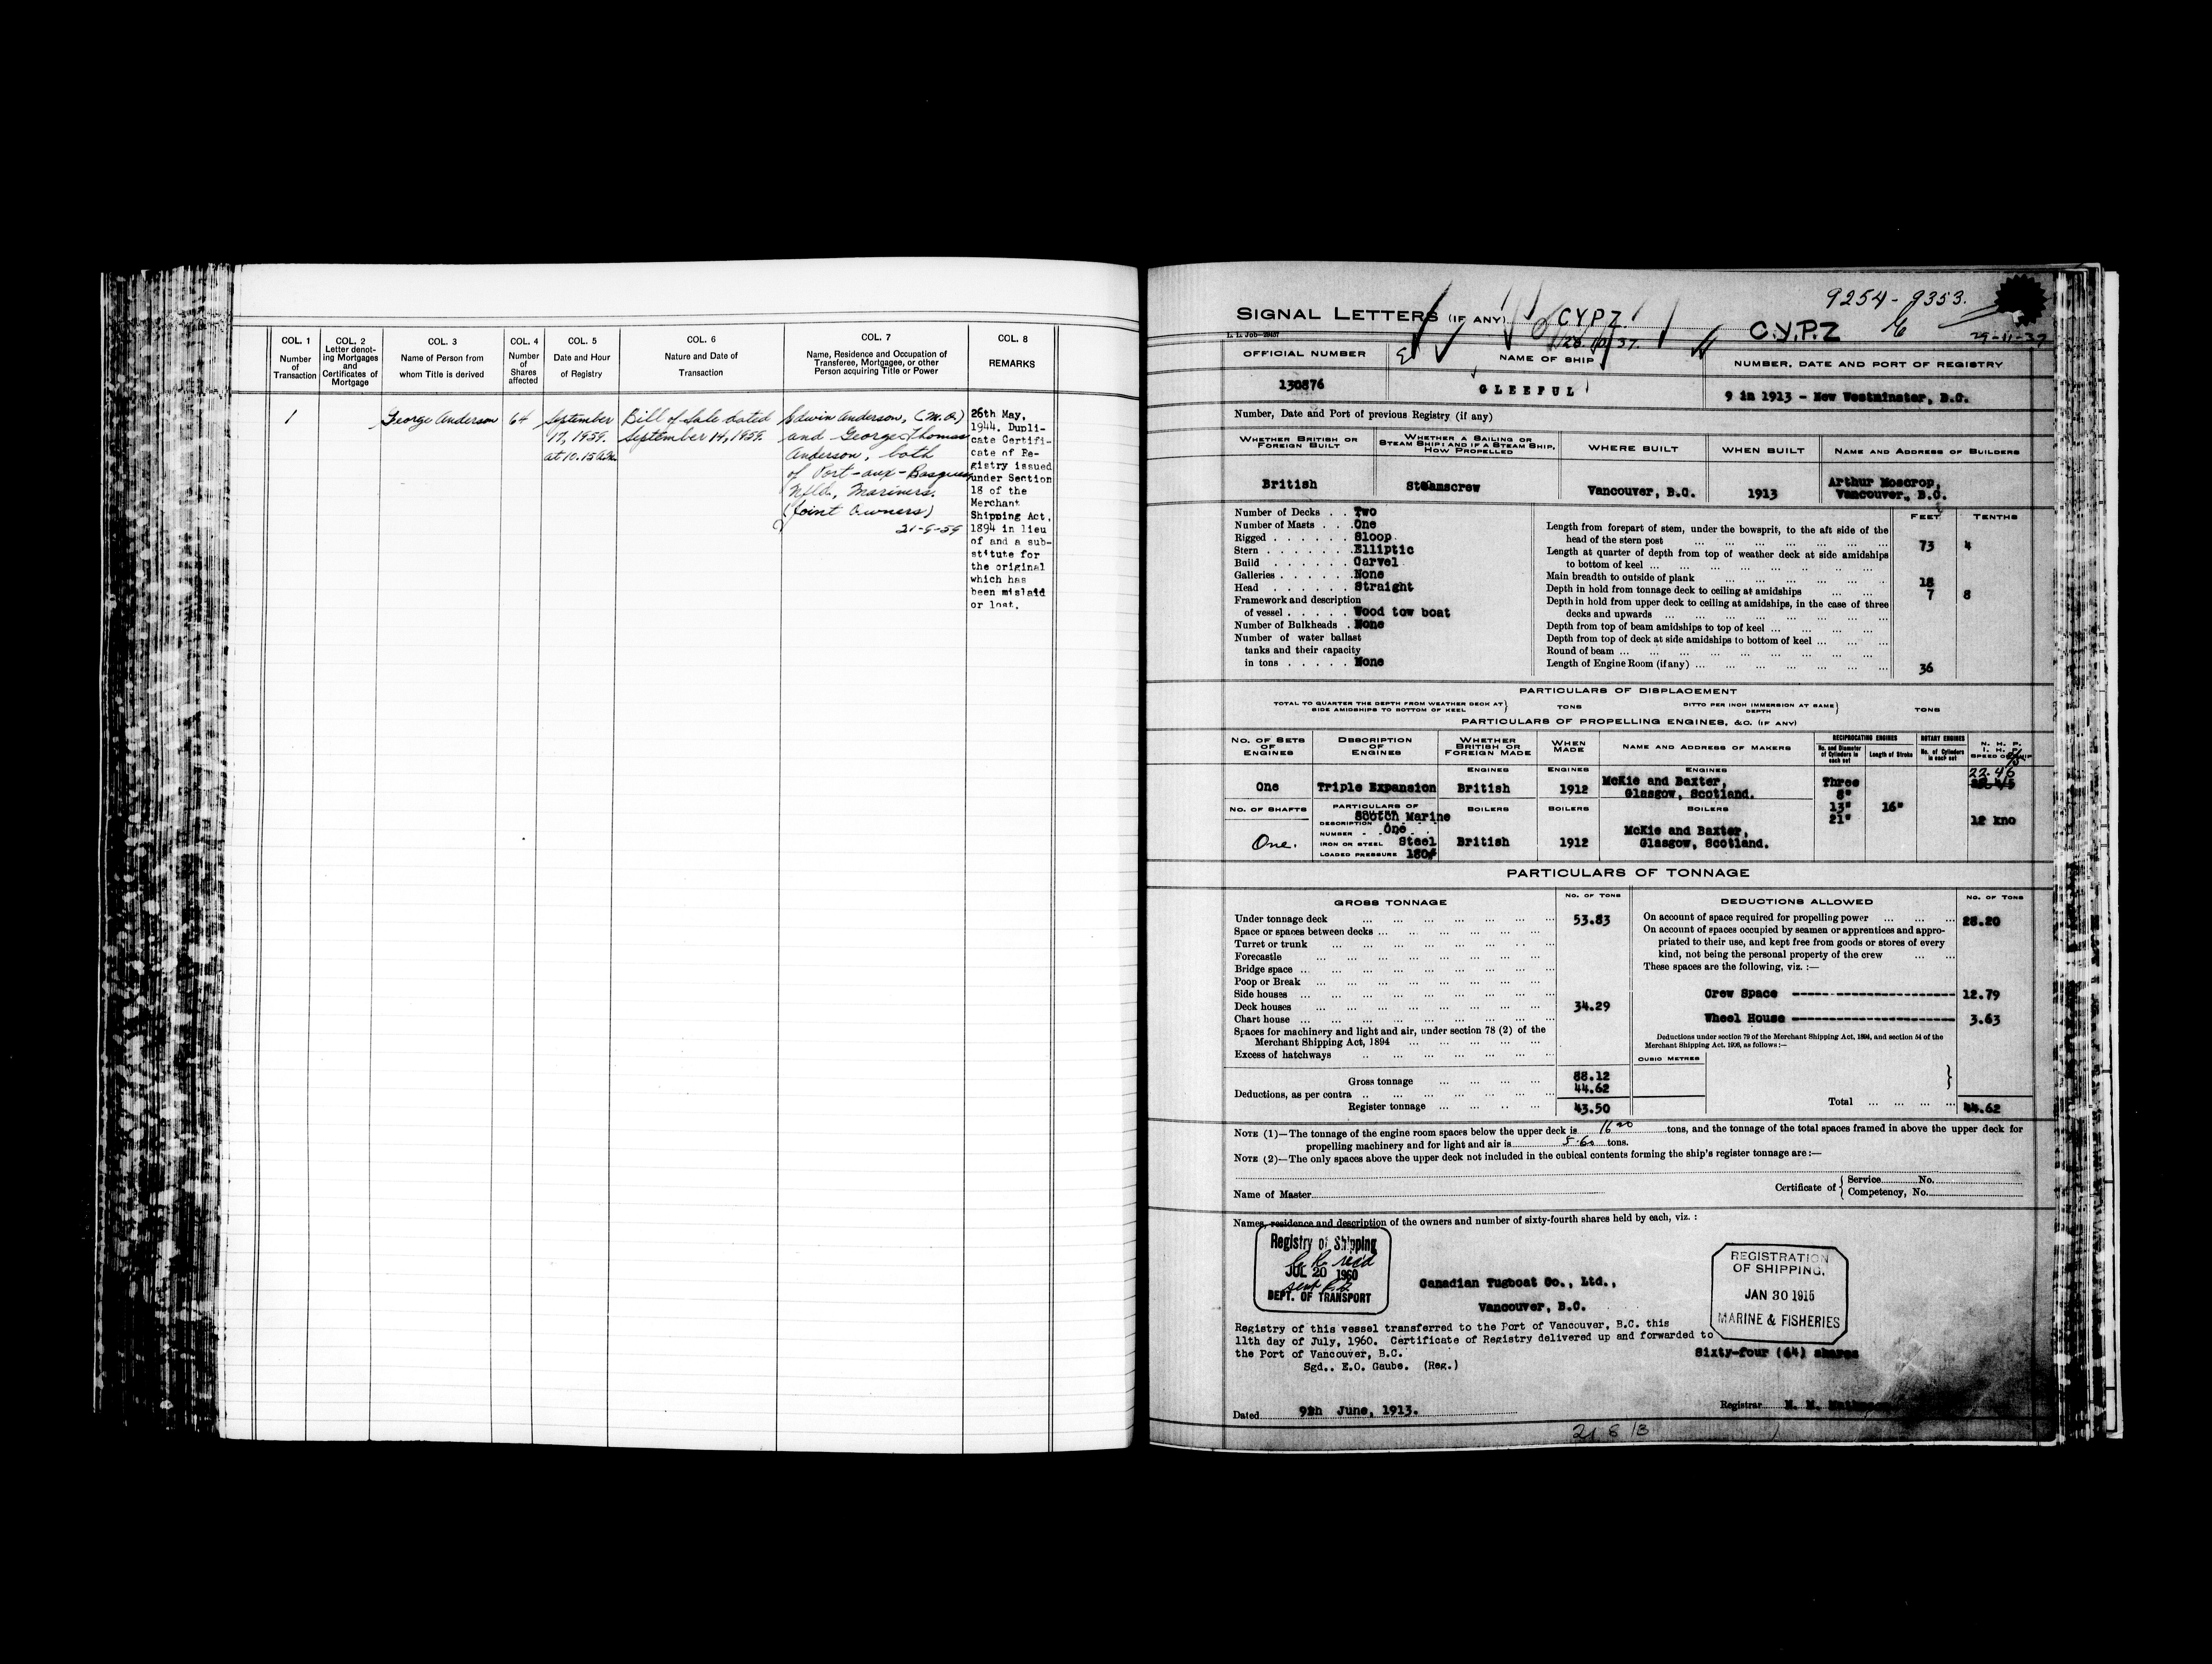 COL. 1
Number
of
Transaction
COL. 2
Letter denot-
ing Mortgages
and
Certificates of
Mortgage
COL. 3
Name of Person from
whom Title is derived
COL. 4
Number
of
Shares
affected
COL. 5
Date and Hour
of Registry
COL. 6
Nature and Date of
Transaction
COL. 7
Name, Residence and Occupation of
Transferee, Mortgagee, or other
Person acquiring Title or Power
COL. 8
REMARKS
1
George Anderson
64
September
17, 1959.
at 10.15 a.m.
Bill of Sale dated
September 14, 1959.
Edwin Anderson, (M.O.)
and George Thomas
Anderson, both
of Port-aux-Basques
Nfld., Mariners.
(Joint Owners)
21-9-59
26th May,
1944. Dupli-
cate Certifi-
cate of Re-
gistry issued
under Section
18 of the
Merchant
Shipping Act,
1894 in lieu
of and a sub-
stitute for
the original
which has
been mislaid
or lost.
9254-9353.
SIGNAL LETTERS (IF ANY) CYPZ.
C.Y.P.Z
29-11-37
L. L. Job—29437
OFFICIAL NUMBER
NAME OF SHIP
NUMBER, DATE AND PORT OF REGISTRY
130876
GLEEFUL
9 in 1913 - New Westminster, B.C.
Number, Date and Port of previous Registry (if any)
WHETHER BRITISH OR
FOREIGN BUILT
WHETHER A SAILING OR
STEAM SHIP; AND IF A STEAM SHIP,
HOW PROPELLED
WHERE BUILT
WHEN BUILT
NAME AND ADDRESS OF BUILDERS
British
Steamscrew
Vancouver, B.C.
1913
Arthur Moscrop,
Vancouver, B.C.
Number of Decks . . Two
Number of Masts . . . One
Rigged . . . . . . Sloop
Stern . . . . . . . Elliptic
Build . . . . . . Carvel
Galleries . . . . . . None
Head . . . . . . Straight
Framework and description
of vessel . . . . . Wood tow boat
Number of Bulkheads . None
Number of water ballast
tanks and their capacity
in tons . . . . . None
FEET TENTHS
Length from forepart of stem, under the bowsprit, to the aft side of the
head of the stern post 73 4
Length at quarter of depth from top of weather deck at side amidships
to bottom of keel
Main breadth to outside of plank 18
Depth in hold from tonnage deck to ceiling at amidships 7 8
Depth in hold from upper deck to ceiling at amidships, in the case of three
decks and upwards
Depth from top of beam amidships to top of keel
Depth from top of deck at side amidships to bottom of keel
Round of beam
Length of Engine Room (if any) 36
PARTICULARS OF DISPLACEMENT
TOTAL TO QUARTER THE DEPTH FROM WEATHER DECK AT
SIDE AMIDSHIPS TO BOTTOM OF KEEL
TONS
DITTO PER INCH IMMERSION AT SAME
DEPTH
TONS
PARTICULARS OF PROPELLING ENGINES, &C. (IF ANY)
NO. OF SETS
OF
ENGINES
DESCRIPTION
OF
ENGINES
WHETHER
BRITISH OR
FOREIGN MADE
WHEN
MADE
NAME AND ADDRESS OF MAKERS
RECIPROCATING ENGINES
No. and Diameter
of Cylinders in
each set
Length of Stroke
ROTARY ENGINES
No. of Cylinders
in each set
N. H. P.
I. H. P.
SPEED OF SHIP
ENGINES
ENGINES
ENGINES
One
Triple Expansion
British
1912
McKie and Baxter,
Glasgow, Scotland.
Three
8"
13"
21"
16"
22.46
12 kno
NO. OF SHAFTS
One.
PARTICULARS OF
Scotch Marine
DESCRIPTION
NUMBER One
IRON OR STEEL Steel
LOADED PRESSURE 180#
BOILERS
British
BOILERS
1912
BOILERS
McKie and Baxter,
Glasgow, Scotland.
PARTICULARS OF TONNAGE
GROSS TONNAGE
NO. OF TONS
Under tonnage deck 53.83
Space or spaces between decks
Turret or trunk
Forecastle
Bridge space
Poop or Break
Side houses
Deck houses 34.29
Chart house
Spaces for machinery and light and air, under section 78 (2) of the
Merchant Shipping Act, 1894
Excess of hatchways
Gross tonnage 88.12
Deductions, as per contra 44.62
Register tonnage 43.50
DEDUCTIONS ALLOWED
NO. OF TONS
On account of space required for propelling power 28.20
On account of spaces occupied by seamen or apprentices and appro-
priated to their use, and kept free from goods or stores of every
kind, not being the personal property of the crew
These spaces are the following, viz. :—
Crew Space 12.79
Wheel House 3.63
Deductions under section 79 of the Merchant Shipping Act, 1894, and section 54 of the
Merchant Shipping Act, 1906, as follows :—
CUBIC METRES
Total 44.62
NOTE (1)—The tonnage of the engine room spaces below the upper deck is 16.00 tons, and the tonnage of the total spaces framed in above the upper deck for
propelling machinery and for light and air is 5.60 tons.
NOTE (2)—The only spaces above the upper deck not included in the cubical contents forming the ship's register tonnage are :—
Name of Master
Certificate of
Service No.
Competency, No.
Names, residence and description of the owners and number of sixty-fourth shares held by each, viz. :
Registry of Shipping
JUL 20 1960
DEPT. OF TRANSPORT
Canadian Tugboat Co., Ltd.,
Vancouver, B.C.
REGISTRATION
OF SHIPPING.
JAN 30 1915
MARINE & FISHERIES
Registry of this vessel transferred to the Port of Vancouver, B.C. this
11th day of July, 1960. Certificate of Registry delivered up and forwarded to
the Port of Vancouver, B.C.
Sgd.. E.O. Gaube. (Reg.)
Sixty-four (64) shares
Dated 9th June, 1913.
Registrar
21 6 13